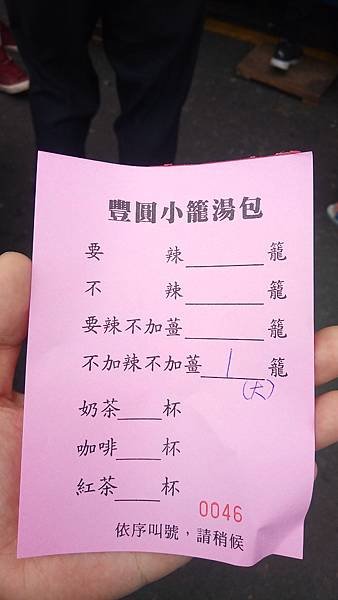 豐圓小籠湯包
要 辣______籠
不 辣______籠
要辣不加薑______籠
不加辣不加薑__1__籠
(大)
奶茶____杯
咖啡____杯
紅茶____杯
0046
依序叫號，請稍候